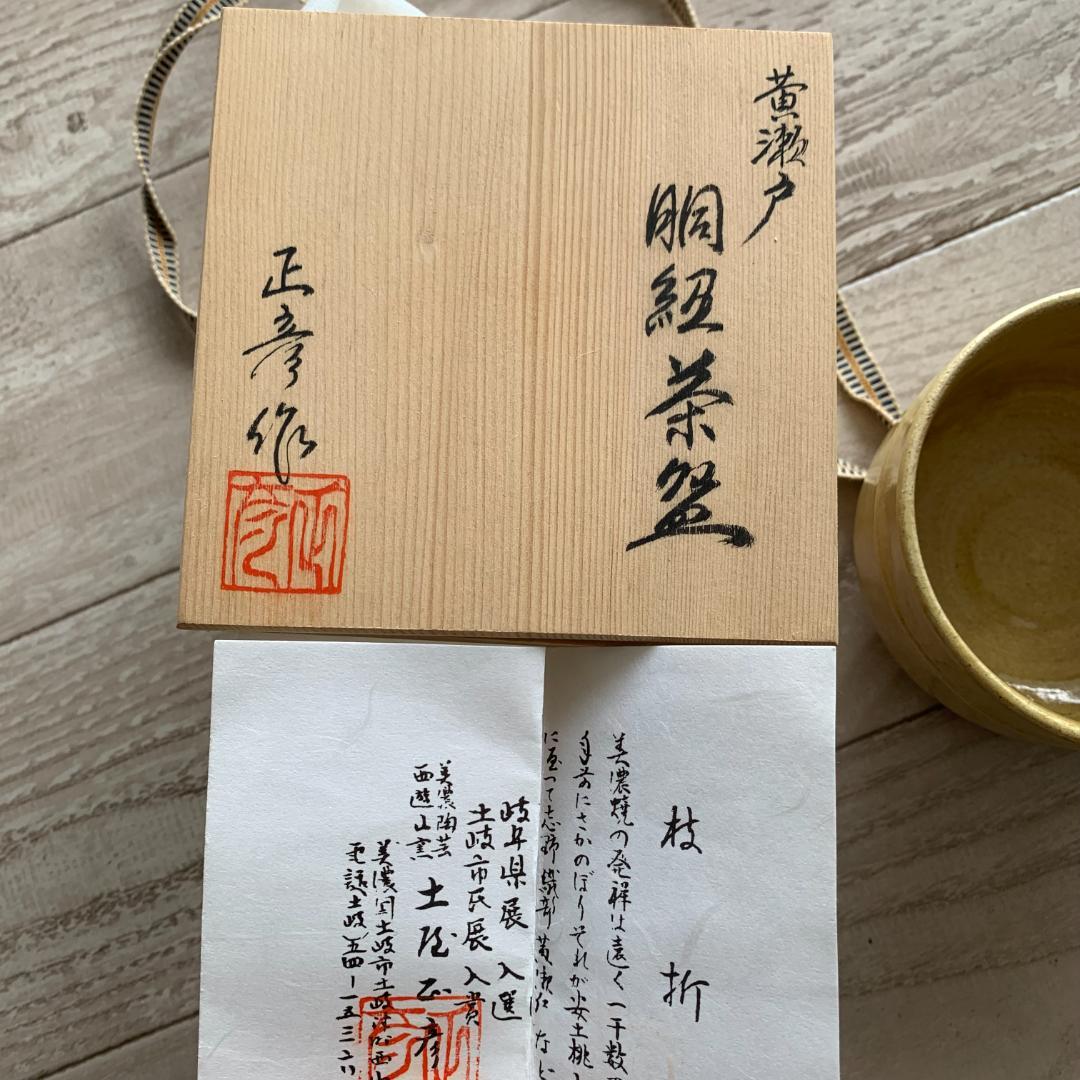 黄瀬戸
胴紐茶盌
正彦作
枝折
美濃焼の発祥は遠く一千数
年前にさかのぼりそれが安土桃
に至って志野織部黄瀬戸など
岐阜県展入選
土岐市民展入賞
美濃陶芸
西遊山窯
土屋正彦
美濃国土岐市土岐津町
電話土岐